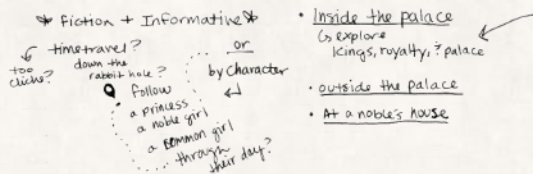 * Fiction + Informative *
timetravel?
too
cliche?
down the
rabbit hole?
follow
a princess
a noble girl
a common girl
through
their day?
or
by Character
• Inside the palace
↳ explore
Kings, royalty, & palace
• outside the palace
• At a noble's house